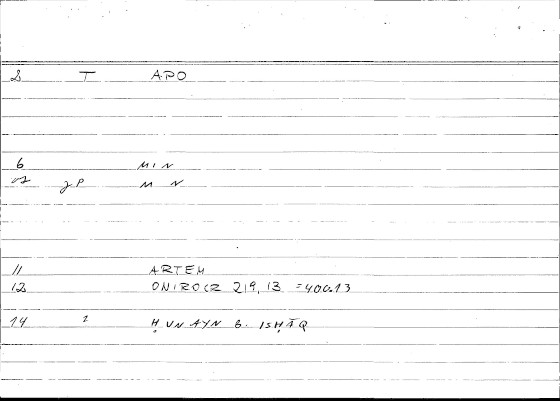 2 T APO
6 MIN
JP M N
11 ARTEM
12 ONIROCR 219, 13 =400.13
14 2 ḤUNAYN B. ISḤĀQ